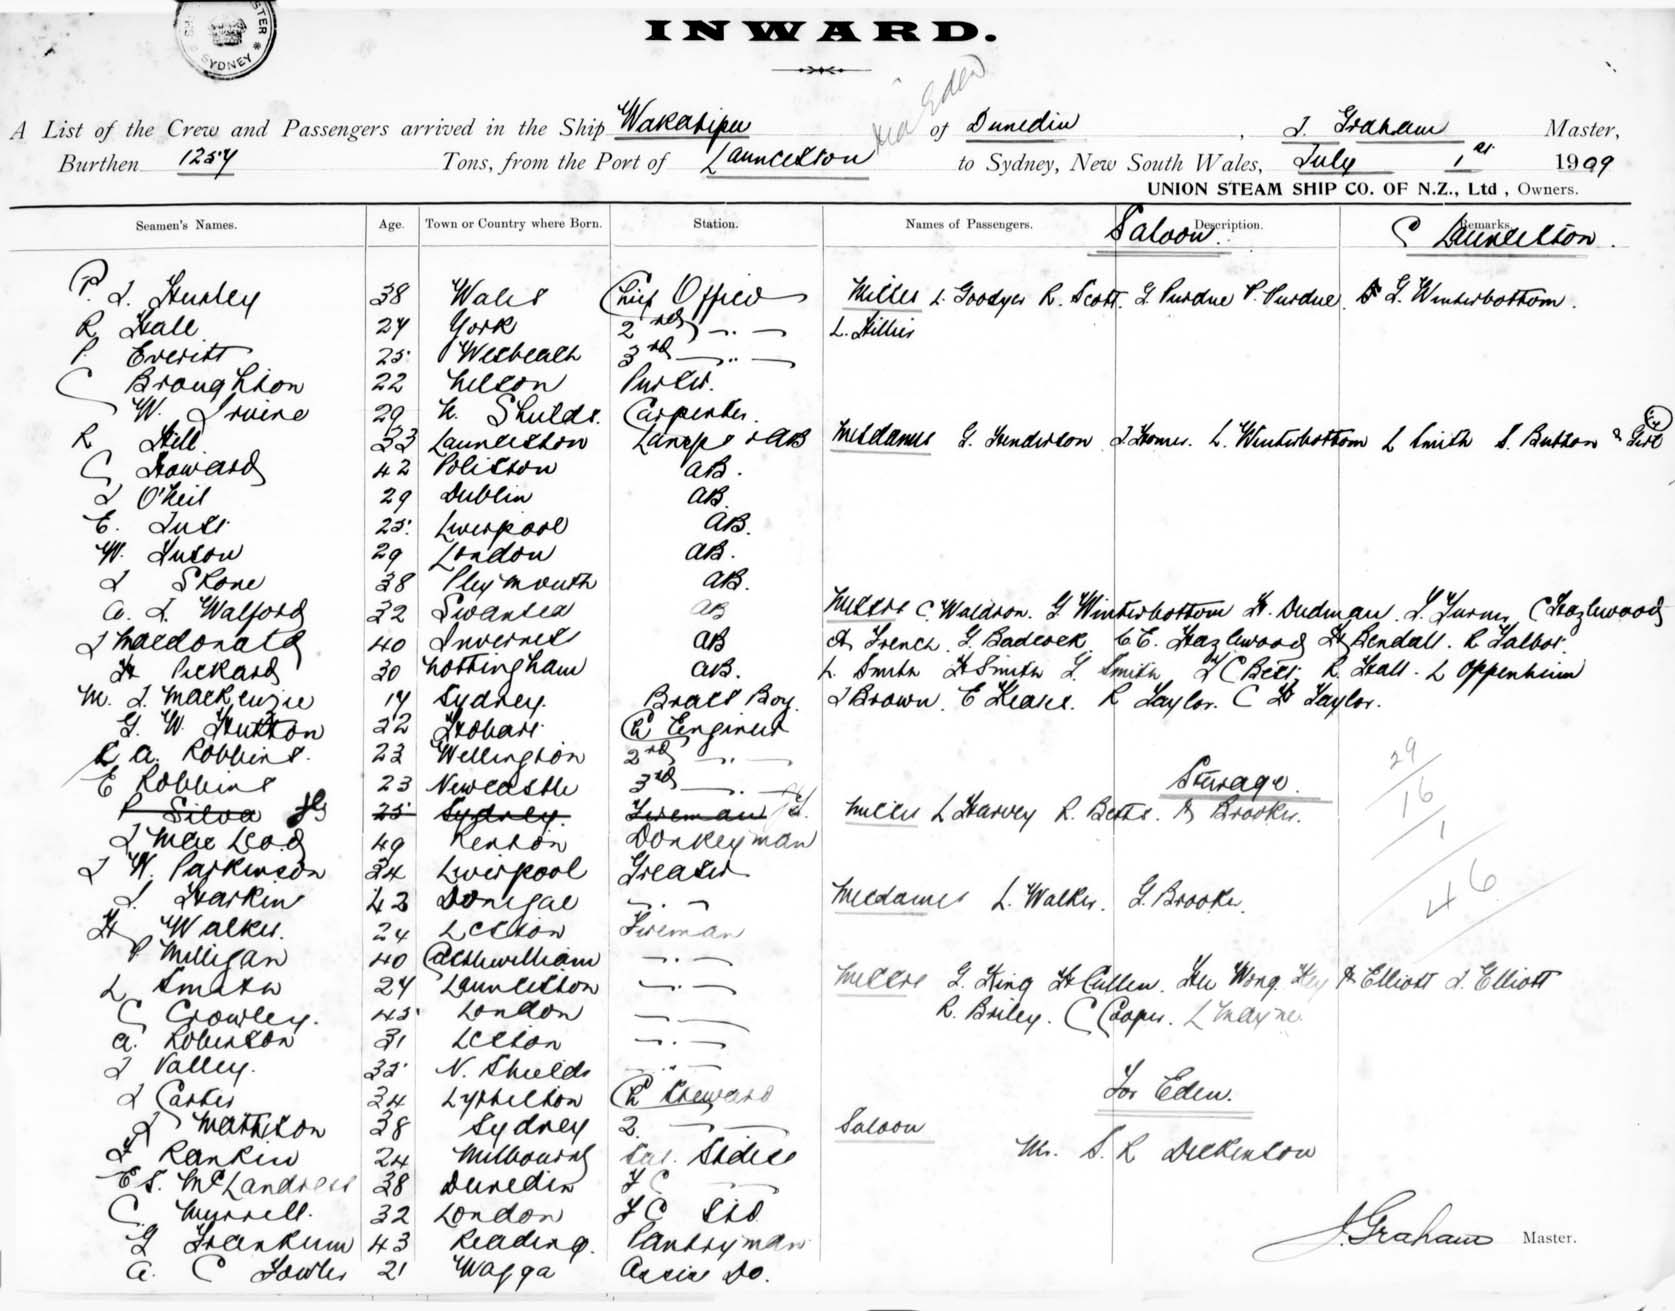 SYDNEY
INWARD.
via Eden
A List of the Crew and Passengers arrived in the Ship Wakatipu of Dunedin, J. Graham Master,
Burthen 1257 Tons, from the Port of Launceston to Sydney, New South Wales, July 1st 1909
UNION STEAM SHIP CO. OF N.Z., Ltd, Owners.
Seamen's Names. Age. Town or Country where Born. Station. Names of Passengers. Description. Remarks.
Saloon. Launceston.
P. J. Hurley 38 Wales Chief Officer Messrs L. Goodyer R. Scott. G Purdue P. Purdue G. Winterbottom.
R Hall 27 York 2nd " L. Hillier
P. Everitt 25 3rd "
C Broughton 22 Nelson Purser.
W. Irvine 29 N. Shields. Carpenter.
R Hill 33 Launceston Lamps & AB Mesdames G. Henderson J Homes. L. Winterbottom L Smith S. Button & Girl
C Howard 42 AB.
J O'Neil 29 Dublin AB.
E. 25 Liverpool AB.
W. Huson 29 London AB.
J Skone 38 Pleymouth AB.
A. J. Walford 32 Swansea AB Messrs C. Waldron. G Winterbottom H. Dudman. Turner C Hazlewood
J Macdonald 40 Inverness AB A French. G. Badcock. C E. Hazlewood H Kendall. R Talbot.
H Pickard 30 Nottingham AB. L. Smith H Smith G Smith C Betts R. Hall. L Oppenheim
M. J. MacKenzie 17 Sydney. Brass Boy. J Brown. E Hease. R Taylor. C H Taylor.
G. W. Hutton 32 Hobart Ch Engineer
A. Robbins. 23 Wellington 2nd "
E Robbins 23 Newcastle 3rd "
Steerage.
P Silva 25 Sydney. Fireman Messrs L Harvey R. Betts. Brooks.
J Mac Leod 49 Donkeyman
J W. Parkinson 34 Liverpool Greaser
J. Harkin 43 Donegal " Mesdames L. Walker. G. Brooke.
H Walker. 24 Fireman
P Milligan 40 Castlewilliam "
L Smith 27 Launceston " Messrs G. King H Cullen. Wong Hey A Elliott J. Elliott
C Crowley. 45 London " R. Briley. C Cooper. L Mayne.
A. Robertson 31 "
J Valley. 35 N. Shields "
J Carter 34 Lyttelton Ch Steward For Eden.
J Mathison 38 Sydney 2. " Saloon
J Rankin 24 Melbourne Sal. Stdess Mr. S. R Dickenson
E S. McLandress 38 Dunedin F C "
C. Murrell. 32 London F C Std.
G Frankum 43 Reading. Pantryman
A. C Fowler 21 Wagga Assis Do.
29
16
1
46
J. Graham Master.